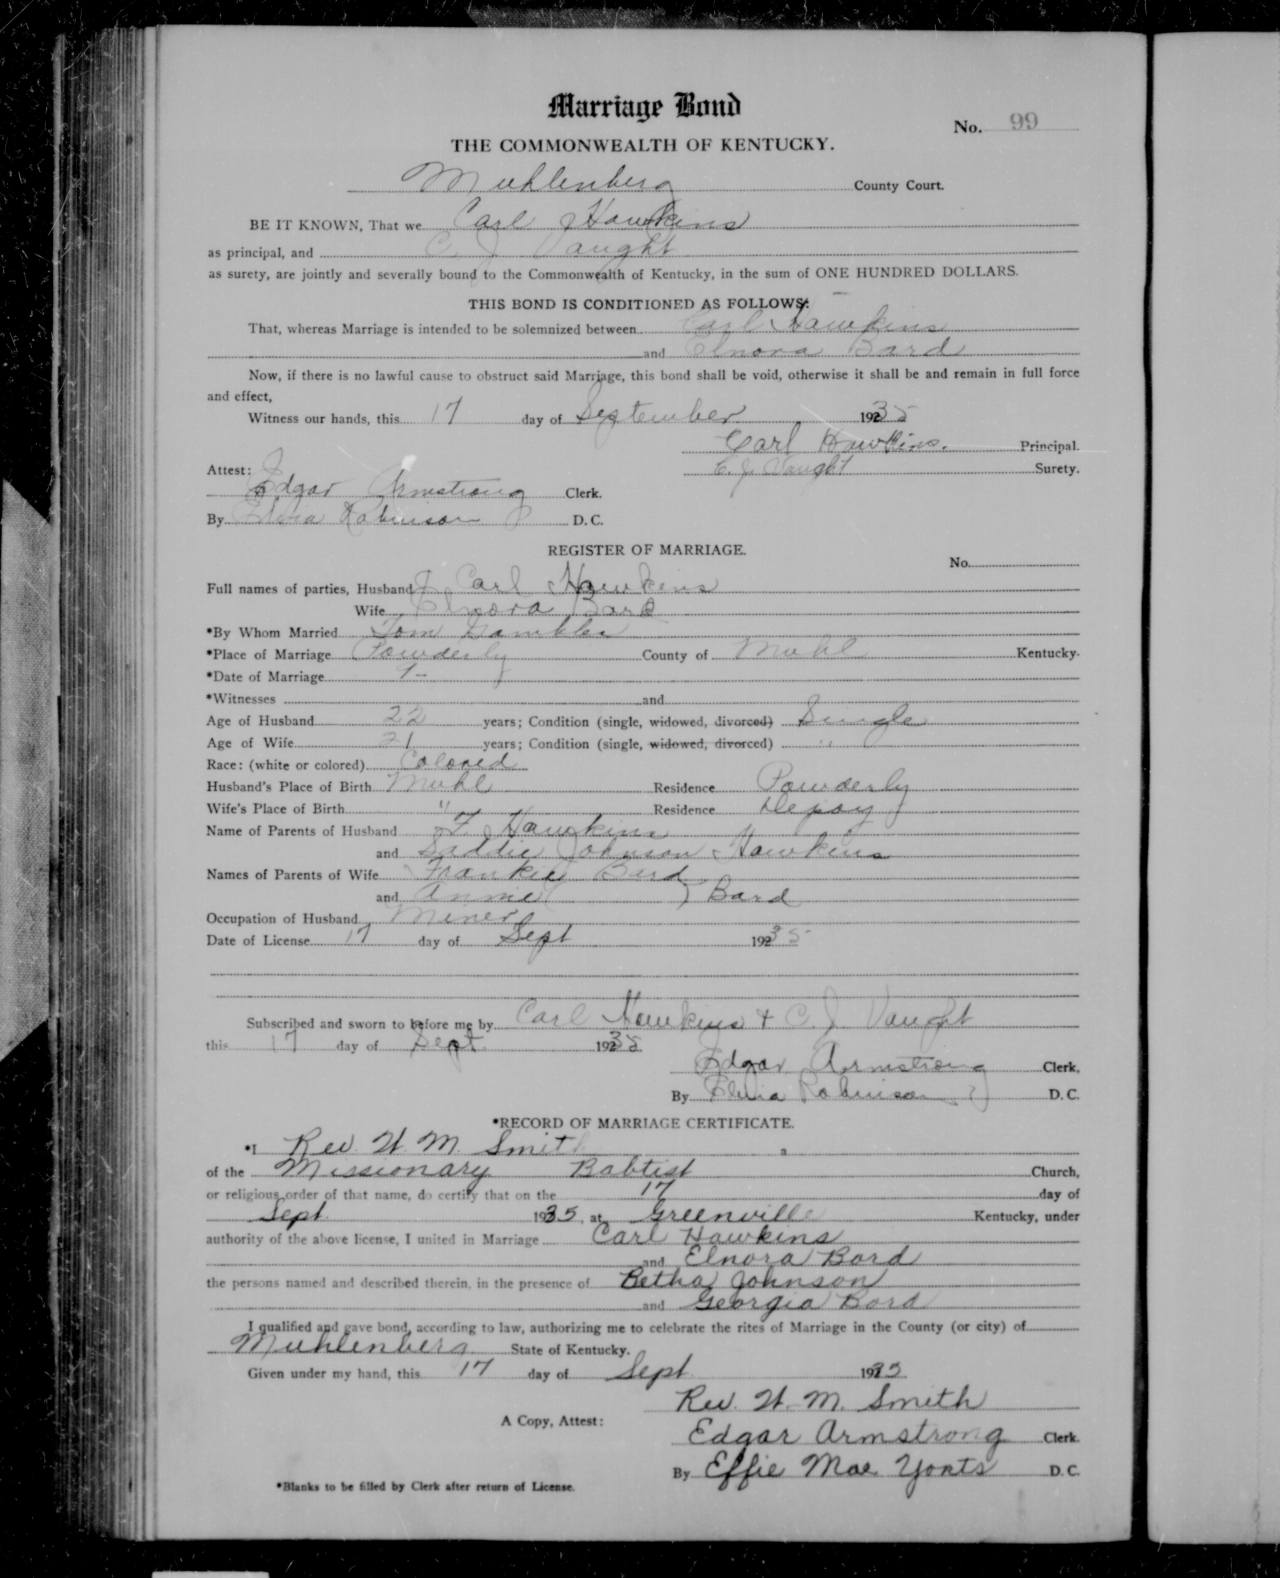 Marriage Bond
No. 99
THE COMMONWEALTH OF KENTUCKY.
Muhlenberg County Court.
BE IT KNOWN, That we Carl Hawkins
as principal, and C. J. Vaught
as surety, are jointly and severally bound to the Commonwealth of Kentucky, in the sum of ONE HUNDRED DOLLARS.
THIS BOND IS CONDITIONED AS FOLLOWS:
That, whereas Marriage is intended to be solemnized between Carl Hawkins
and Elnora Bard
Now, if there is no lawful cause to obstruct said Marriage, this bond shall be void, otherwise it shall be and remain in full force
and effect,
Witness our hands, this 17 day of September 1935
Carl Hawkins. Principal.
Attest: C. J. Vaught Surety.
Edgar Armstrong Clerk.
By Robinson D. C.
REGISTER OF MARRIAGE.
No.
Full names of parties, Husband Carl Hawkins
Wife Elnora Bard
*By Whom Married Tom
*Place of Marriage Powderly County of Muhl Kentucky.
*Date of Marriage 9-
*Witnesses and
Age of Husband 22 years; Condition (single, widowed, divorced) Single
Age of Wife 21 years; Condition (single, widowed, divorced) "
Race: (white or colored) Colored
Husband's Place of Birth Muhl Residence Powderly
Wife's Place of Birth " Residence Depoy
Name of Parents of Husband Hawkins
and Saddie Johnson Hawkins
Names of Parents of Wife Frankie Bard
and Annie ( ) Bard
Occupation of Husband Miner
Date of License 17 day of Sept 1935
Subscribed and sworn to before me by Carl Hawkins + C. J. Vaught
this 17 day of Sept. 1935
Edgar Armstrong Clerk,
By Robinson D. C.
*RECORD OF MARRIAGE CERTIFICATE.
*I Rev. W. M. Smith a
of the Missionary Babtist Church,
or religious order of that name, do certify that on the 17 day of
Sept 1935, at Greenville Kentucky, under
authority of the above license, I united in Marriage Carl Hawkins
and Elnora Bord
the persons named and described therein, in the presence of Betha Johnson
and Georgia Bord
I qualified and gave bond, according to law, authorizing me to celebrate the rites of Marriage in the County (or city) of
Muhlenberg State of Kentucky.
Given under my hand, this 17 day of Sept 1935
Rev. W. M. Smith
A Copy, Attest:
Edgar Armstrong Clerk.
By Effie Mae Yonts D. C.
*Blanks to be filled by Clerk after return of License.